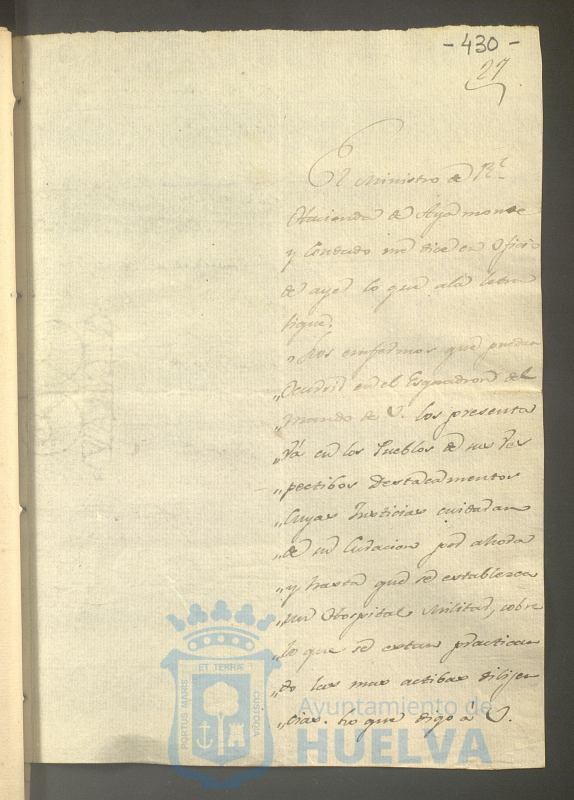 - 430 -
27
El Ministro de Rl
Hacienda de Ayamonte
y Condado me dice en oficio
de ayer lo que ala letra
sigue.
" Los enfermos que puedan
" Ocurrir en el Esquadron del
" mando de V. los presenta
" rá en los Pueblos de sus res
" pectibos Destacamentos
" Cuyas Justicias cuidaran
" de su Curacion por ahora
" y hasta que se establezca
" un Hospital Militar, sobre
" lo que se estan practican
" do las mas actibas dilijen
" cias. Lo que digo á V.
PORTUS MARIS ET TERRAE CUSTODIA
Ayuntamiento de
HUELVA